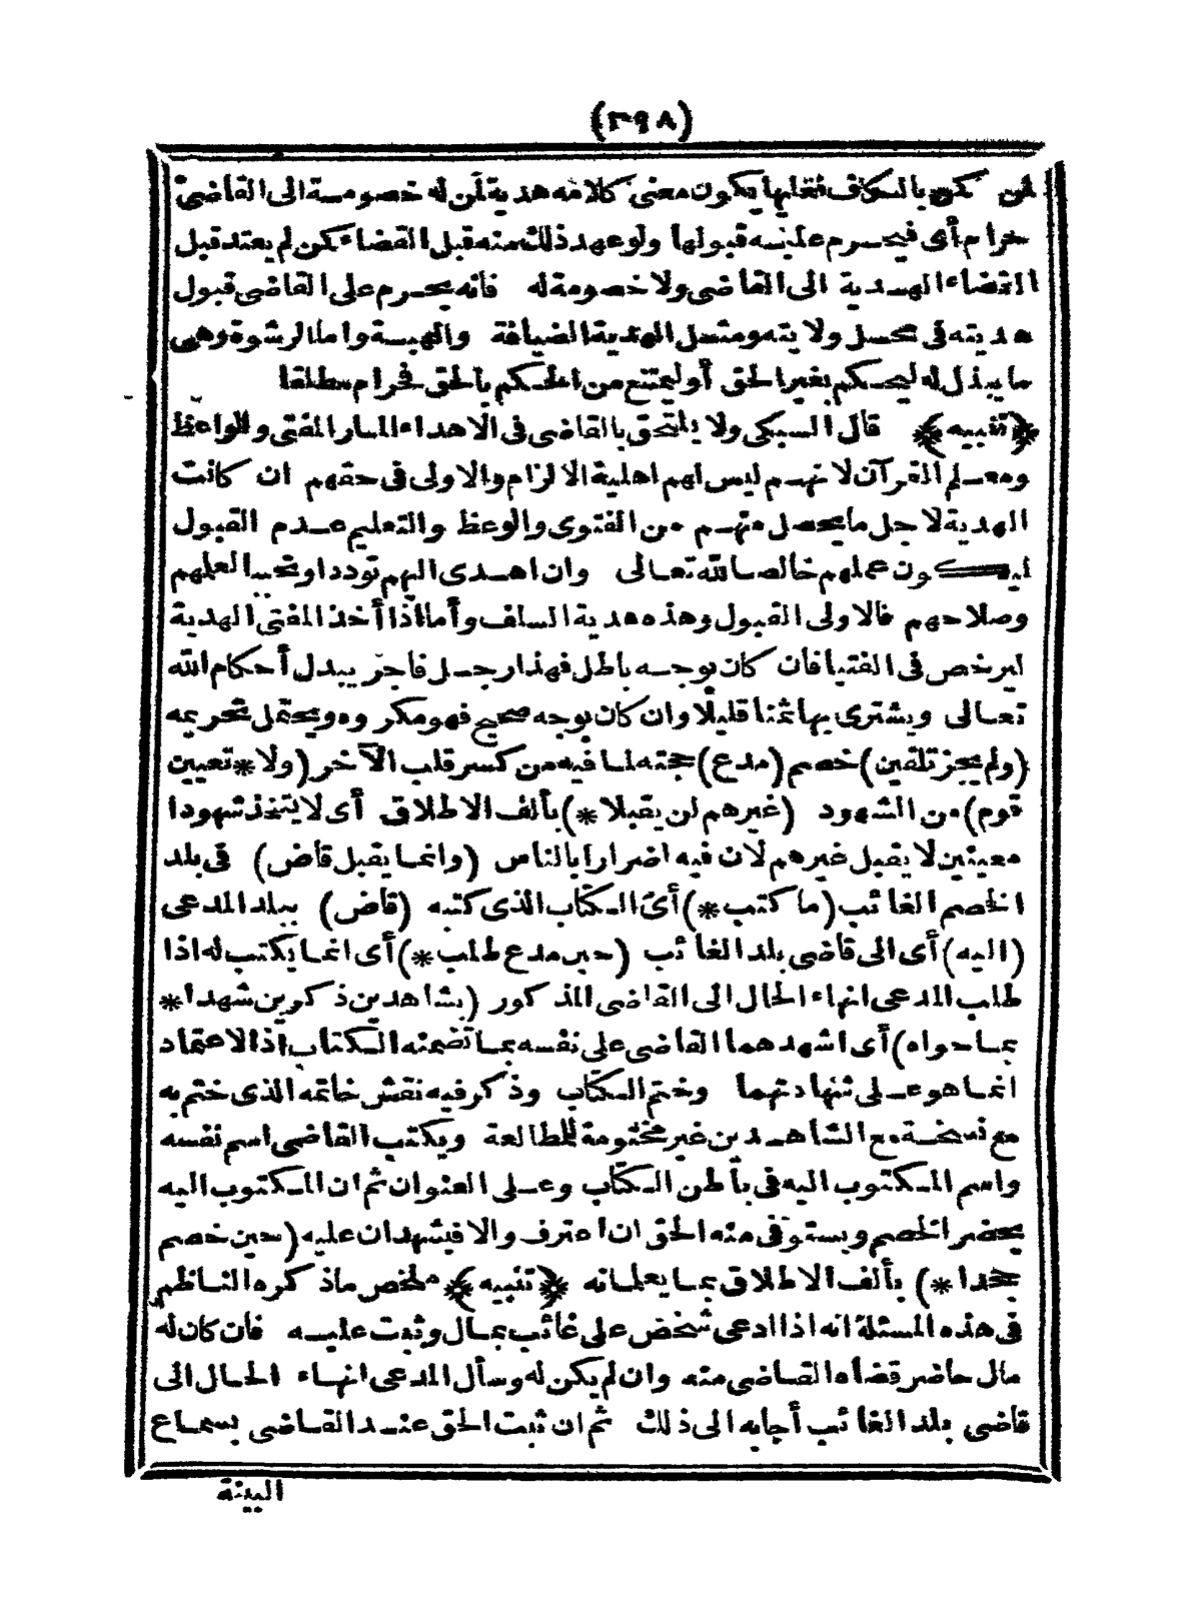 (٣٩٨)
لمن يكن بالكاف فعليها يكون معنى كلامه هدية لمن له خصومة الى القاضى
حرام أى فيحرم عليه قبولها ولو عهد ذلك منه قبل القضاء يكن لم يعتد قبل
القضاء الهدية الى القاضى ولا خصومة له فانه يحرم على القاضى قبول
هديته فى محل ولايته ومثل الهدية الضيافة والهبة واما الرشوة وهى
ما يبذل له ليحكم بغير الحق أو ليمتنع من الحكم بالحق فحرام مطلقا
﴿تنبيه﴾ قال السبكى ولا يلتحق بالقاضى فى الاهداء المار المفتى والواعظ
ومعلم القرآن لانهم ليس لهم اهلية الالزام والاولى فى حقهم ان كانت
الهدية لاجل ما يحصل منهم من الفتوى والوعظ والتعليم عدم القبول
ليكون عملهم خالصا لله تعالى وان اهدى اليهم توددا وتحببا لعلمهم
وصلاحهم فالاولى القبول وهذه هدية السلف وأما اذا أخذ المفتى الهدية
ليرخص فى الفتيا فان كان بوجه باطل فهذا رجل فاجر يبدل أحكام الله
تعالى ويشترى بها ثمنا قليلا وان كان بوجه صحيح فهو مكروه ويحتمل تحريمه
(ولم يجز تلقين) خصم (مدع) حجته لما فيه من كسر قلب الآخر (ولا * تعيين
قوم) من الشهود (غيرهم لن يقبلا *) بألف الاطلاق أى لا يتخذ شهودا
معينين لا يقبل غيرهم لان فيه اضرارا بالناس (وانما يقبل قاض) فى بلد
الخصم الغائب (ما كتب *) أى الكتاب الذى كتبه (قاض) ببلد المدعى
(اليه) أى الى قاضى بلد الغائب (حين مدع طلب *) أى انما يكتب له اذا
طلب المدعى انهاء الحال الى القاضى المذكور (بشاهدين ذكرين شهدا *
بما حواه) أى اشهدهما القاضى على نفسه بما تضمنه الكتاب اذ الاعتماد
انما هو على شهادتهما وختم الكتاب وذكر فيه نقش خاتمه الذى ختم به
مع نسخة مع الشاهدين غير مختومة للمطالعة ويكتب القاضى اسم نفسه
واسم المكتوب اليه فى باطن الكتاب وعلى العنوان ثم ان المكتوب اليه
يحضر الخصم ويستوفى منه الحق ان اعترف والا فيشهدان عليه (حين خصم
جحدا *) بألف الاطلاق بما يعلمانه ﴿تنبيه﴾ ملخص ما ذكره الناظم
فى هذه المسئلة انه اذا ادعى شخص على غائب بمال وثبت عليه فان كان له
مال حاضر قضاه القاضى منه وان لم يكن له وسأل المدعى انهاء الحال الى
قاضى بلد الغائب أجابه الى ذلك ثم ان ثبت الحق عند القاضى بسماع
البينة